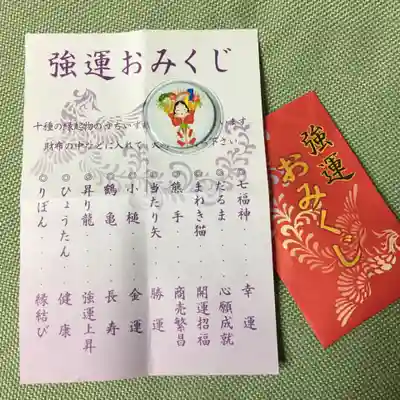 強運おみくじ
十種の縁起物のうちいずれ ます
財布の中などに入れて 下さい
◎七福神・・・・幸運
◎だるま・・・・心願成就
◎まねき猫・・・開運招福
◎熊手・・・・・商売繁昌
◎当たり矢・・・勝運
◎小槌・・・・・金運
◎鶴亀・・・・・長寿
◎昇り龍・・・・強運上昇
◎ひょうたん・・健康
◎りぼん・・・・縁結び
強運
おみくじ